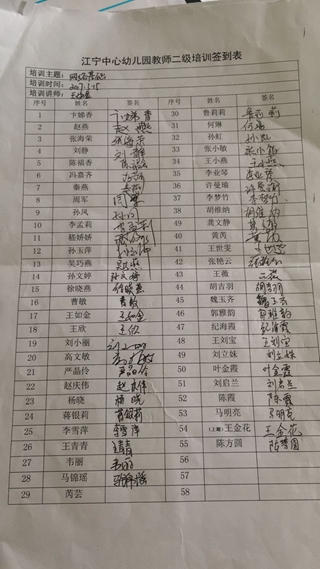 江宁中心幼儿园教师二级培训签到表
培训主题：
培训时间：2017.3.15
培训讲师：
序号 姓名 签名 序号 姓名 签名
1 卞娣香 卞娣香 30 鲁莉莉 鲁莉莉
2 赵燕 赵燕 31 何琳 何琳
3 张海荣 张海荣 32 孙虹 孙虹
4 刘静 刘静 33 张小敏 张小敏
5 陈福香 34 王小燕 王小燕
6 冯嘉齐 35 李业琴
7 秦燕 秦燕 36 许曼瑜 许曼瑜
8 周军 周军 37 李梦竹 李梦竹
9 孙凤 38 胡维纳 胡维纳
10 李孟莉 39 龚文静
11 嵇娇娇 40 黄芮 黄芮
12 孙玉萍 41 王世雯
13 吴巧燕 42 张艳云
14 孙文婷 孙文婷 43 王薇 王薇
15 徐晓燕 徐晓燕 44 胡吉羽 胡吉羽
16 曹敏 曹敏 45 魏玉齐
17 王如金 王如金 46 郭雅韵
18 王欣 王欣 47 纪海霞 纪海霞
19 刘小丽 48 王刘宝 王刘宝
20 高文敏 高文敏 49 刘立妹 刘立妹
21 严晶伶 严晶伶 50 叶金霞 叶金霞
22 赵庆伟 赵庆伟 51 刘启兰 刘启兰
23 杨晓 杨晓 52 陈霞 陈霞
24 蒋银莉 蒋银莉 53 马明亮 马明亮
25 李雪萍 李雪萍 54 王金花 王金花
26 王青青 55 陈方圆 陈方圆
27 韦丽 韦丽 56
28 马锦瑶 57
29 芮芸 58